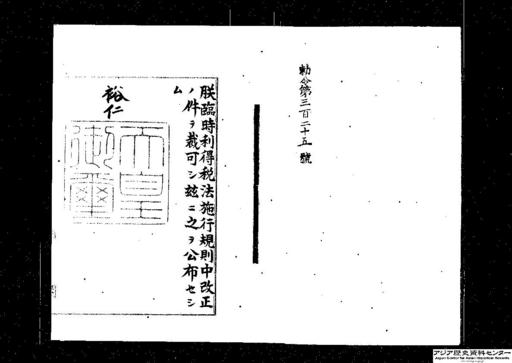 勅令第三百二十五號
朕臨時利得税法施行規則中改正
ノ件ヲ裁可シ玆ニ之ヲ公布セシ
ム
裕仁
天皇御璽
アジア歴史資料センター
Japan Center for Asian Historical Records